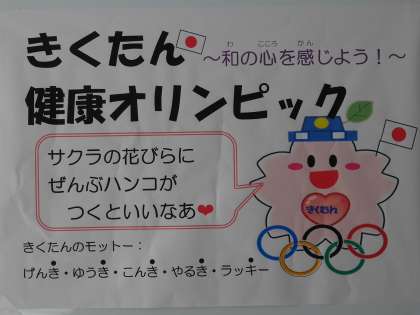 きくたん ～和の心を感じよう！～
わ こころ かん
健康オリンピック
サクラの花びらに
ぜんぶハンコが
つくといいなあ❤
きくたん
きくたんのモットー：
げんき・ゆうき・こんき・やるき・ラッキー